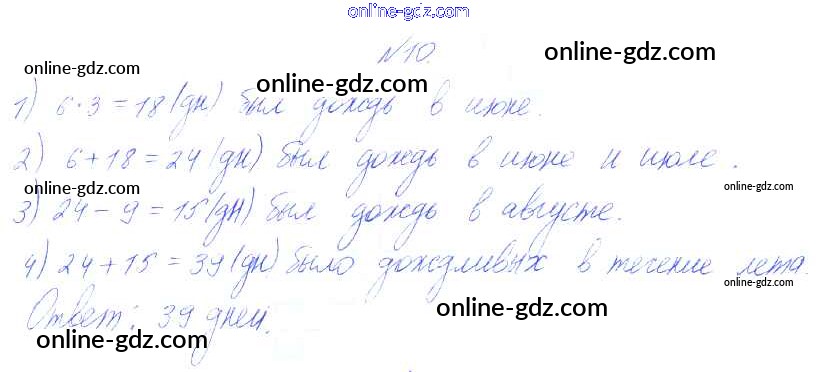 online-gdz.com
№10.
online-gdz.com
online-gdz.com
online-gdz.com
1) 6·3=18 (дн) был дождь в июне.
2) 6+18=24 (дн) был дождь в июне и июле.
online-gdz.com
online-gdz.com
online-gdz.com
3) 24-9=15 (дн) был дождь в августе.
4) 24+15=39 (дн) было дождливых в течение лета.
online-gdz.com
Ответ: 39 дней.
online-gdz.com
online-gdz.com
online-gdz.com